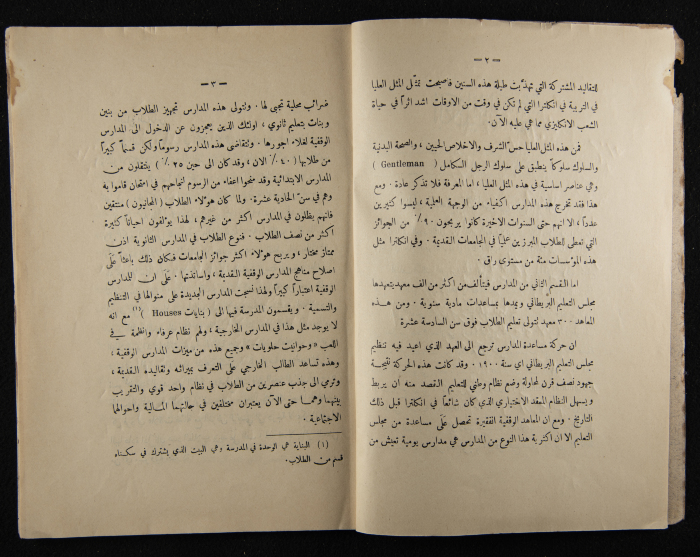 — ٢ —
للتقاليد المشتركة التي تهذبت طيلة هذه السنين فاصبحت تمثل المثل العليا
في التربية في انكلترا التي لم تكن في وقت من الاوقات اشد اثراً في حياة
الشعب الانكليزي مما هي عليه الآن.
فمن هذه المثل العليا حس الشرف والاخلاص الحيين ، والصحة البدنية
والسلوك سلوكاً ينطبق على سلوك الرجل الكامل ( Gentleman )
وهي عناصر اساسية في هذه المثل العليا ، اما المعرفة فلا تذكر عادة . ومع
هذا فقد تخرج هذه المدارس اكفياء من الوجهة العلمية ، ليسوا كثيرين
عدداً ، الا انهم حتى السنوات الاخيرة كانوا يربحون ٩٠٪ من الجوائز
التي تعطى للطلاب المبرزين علمياً في الجامعات القديمة . وفي انكلترا مثل
هذه المؤسسات مئة من مستوى راق .
اما القسم الثاني من المدارس فيتألف من اكثر من الف معهد يتعهدها
مجلس التعليم البريطاني ويمدها بمساعدات مادية سنوية . ومن هذه
المعاهد ٣٠٠ معهد تتولى تعليم الطلاب فوق سن السادسة عشرة
ان حركة مساعدة المدارس ترجع الى العهد الذي اعيد فيه تنظيم
مجلس التعليم البريطاني اي سنة ١٩٠٠ . وقد كانت هذه الحركة نتيجة
جهود نصف قرن لمحاولة وضع نظام وطني للتعليم القصد منه أن يربط
ويسهل النظام المعقد الاختياري الذي كان شائعاً في انكلترا قبل ذلك
التاريخ . ومع ان المعاهد الوقفية الفقيرة تحصل على مساعدة من مجلس
التعليم الا ان اكثرية هذا النوع من المدارس هي مدارس يومية تعيش من
— ٣ —
ضرائب محلية تجبى لها . وتتولى هذه المدارس تجهيز الطلاب من بنين
وبنات بتعليم ثانوي ، اولئك الذين يعجزون عن الدخول الى المدارس
الوقفية لغلاء اجورها . وتتقاضى هذه المدارس رسوماً ولكن قسماً كبيراً
من طلابها ( ٤٠٪ الان ، وقد كان الى حين ٢٥٪ ) ينتقلون من
المدارس الابتدائية وقد منحوا اعفاء من الرسوم لنجاحهم في امتحان قاموا به
وهم في سن الحادية عشرة . ولما كان هؤلاء الطلاب ( المجانيون ) منتقين
فانهم يظلون في المدارس اكثر من غيرهم ، لهذا يؤلفون احياناً كثيرة
أكثر من نصف الطلاب . فنوع الطلاب في المدارس الثانوية اذن
ممتاز مختار ، ويربح هؤلاء اكثر جوائز الجامعات فكان ذلك باعثاً على
اصلاح مناهج المدارس الوقفية القديمة ، واساتذتها . على ان للمدارس
الوقفية اعتباراً كبيراً ولهذا نسجت المدارس الجديدة على منوالها في التنظيم
والتسمية . ويقسمون المدرسة فيها الى ( بنايات Houses )(١) مع انه
لا يوجد مثل هذا في المدارس الخارجية ، ولهم نظام عرفاء وانظمة في
اللعب « وحوانيت حلويات » وجميع هذه من ميزات المدارس الوقفية ،
وهذه تساعد الطالب الخارجي على التعرف بميراثه وتقاليده القديمة ،
وترمي الى جذب عنصرين من الطلاب في نظام واحد قوي والتقريب
بينهما وهما حتى الآن يعتبران مختلفين في حالتهما المالية واحوالهما
الاجتماعية .
(١) البناية هي الوحدة في المدرسة وهي البيت الذي يشترك في سكناه
قسم من الطلاب.